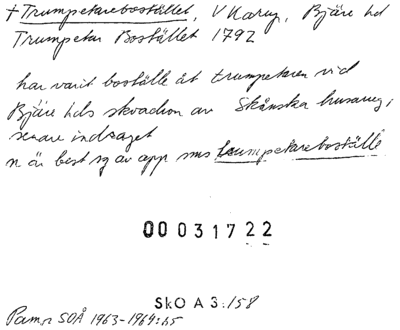 + Trumpetarebostället, V Karup, Bjäre hd
Trumpetar Bostället 1792
har varit boställe åt trumpetaren vid
Bjäre hds skvadron av Skånska husarreg,
senare indraget
n är best sg av app sms trumpetareboställe
00031722
SkO A 3:158
SOÅ 1963-1964:65